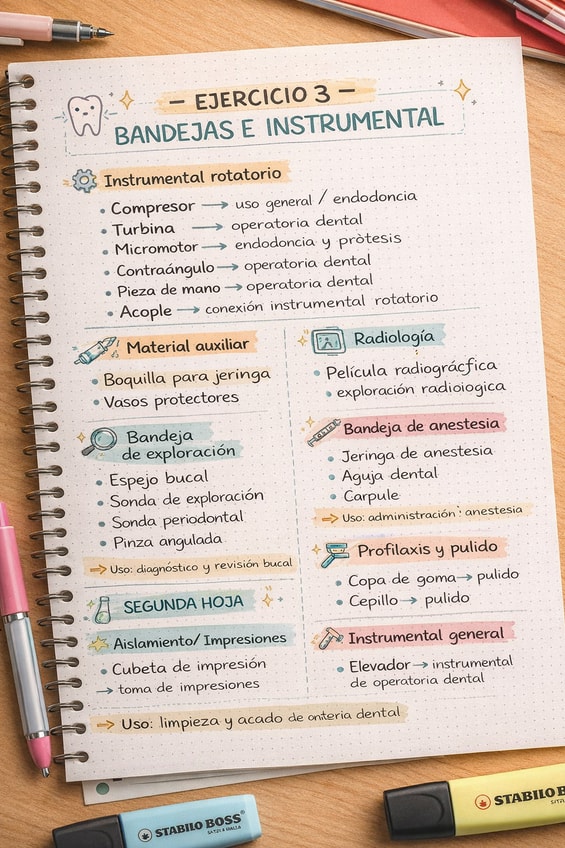 — EJERCICIO 3 —
BANDEJAS E INSTRUMENTAL
Instrumental rotatorio
• Compresor → uso general / endodoncia
• Turbina → operatoria dental
• Micromotor → endodoncia y pròtesis
• Contraángulo → operatoria dental
• Pieza de mano → operatoria dental
• Acople → conexión instrumental rotatorio
Material auxiliar
• Boquilla para jeringa
• Vasos protectores
Bandeja
de exploración
• Espejo bucal
• Sonda de exploración
• Sonda periodontal
• Pinza angulada
→ Uso: diagnóstico y revisión bucal
SEGUNDA HOJA
Aislamiento/Impresiones
• Cubeta de impresión
→ toma de impresiones
Radiología
• Película radiográcfica
• exploración radioiogica
Bandeja de anestesia
• Jeringa de anestesia
• Aguja dental
• Carpule
→ Uso: administración: anestesia
Profilaxis y pulido
• Copa de goma → pulido
• Cepillo → pulido
Instrumental general
• Elevador → instrumental
de operatoria dental
→ Uso: limpieza y acado de onteria dental
STABILO BOSS
STABILO B